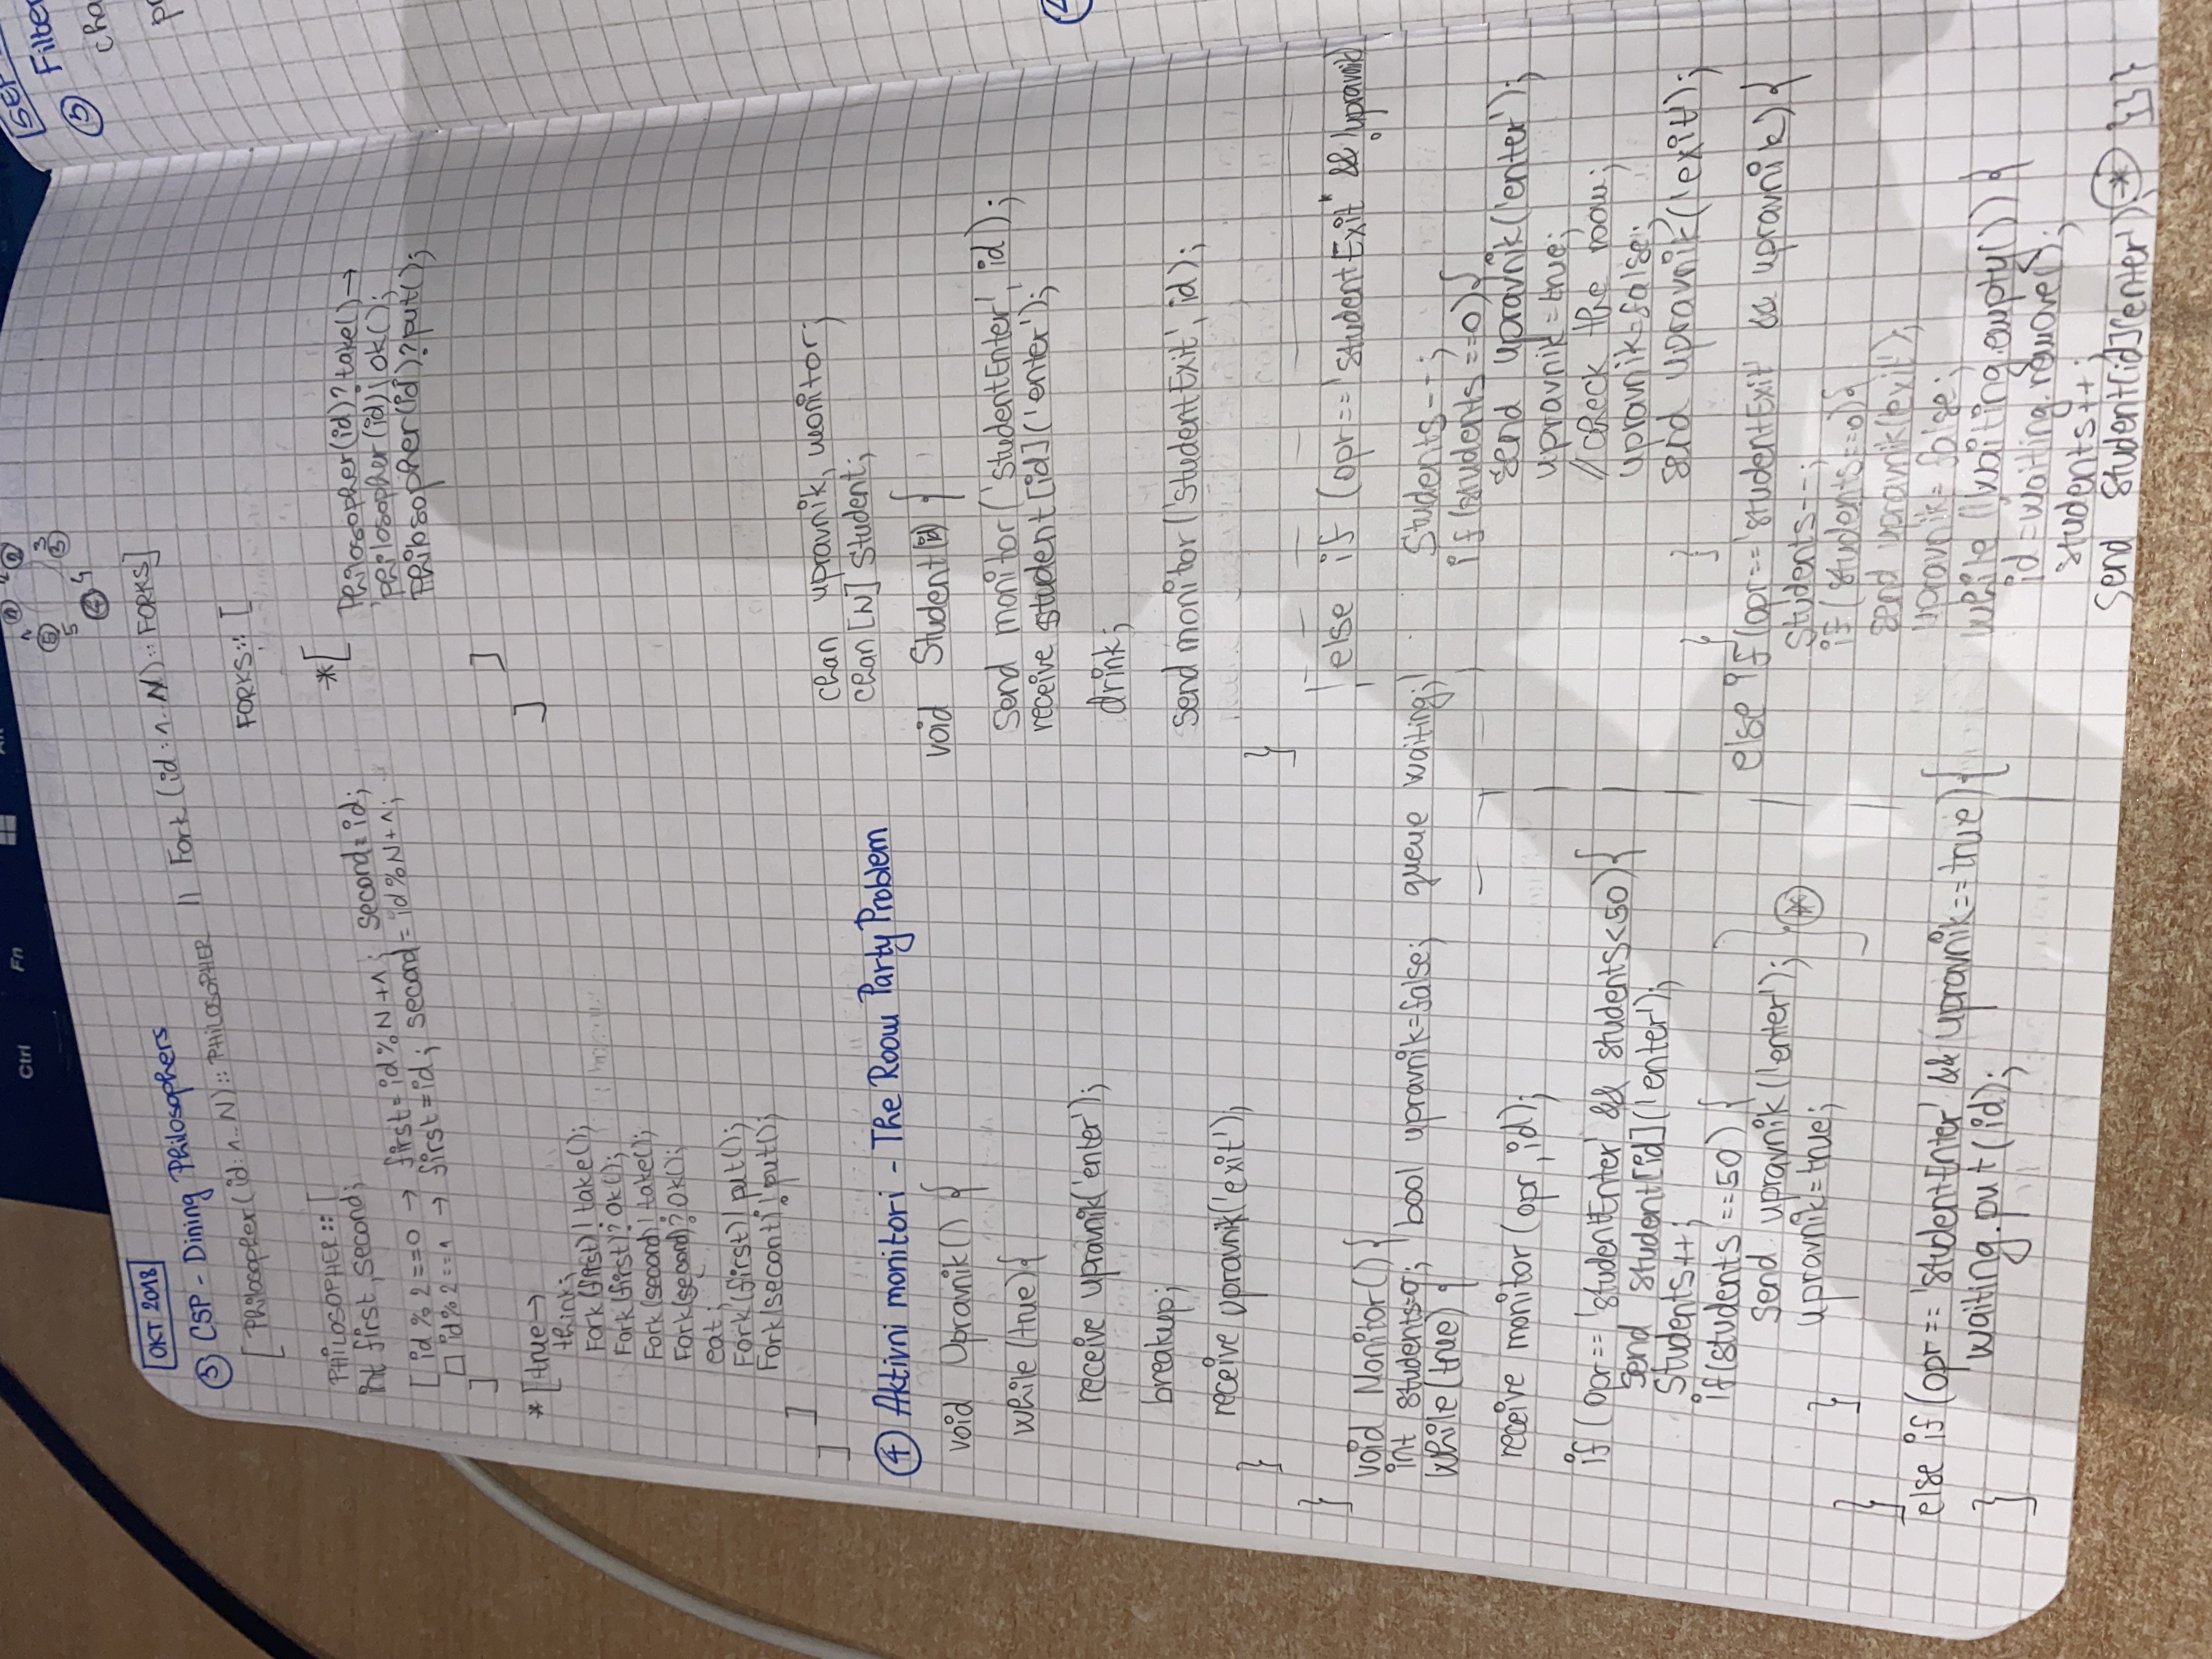 Ctrl
Fn
1
2
5
3
3
5
4
4
OKT 2018
③ CSP - Dining Philosophers
[ Philosopher(id:1..N)::PHILOSOPHER || Fork(id:1..N)::FORKS]
PHILOSOPHER::[
int first, second;
[id%2==0 → first=id%N+1; second=id;
□ id%2==1 → first=id; second=id%N+1;
]
*[true→
think;
Fork(first)!take();
Fork(first)?ok();
Fork(second)!take();
Fork(second)?ok();
eat;
Fork(first)!put();
Fork(secont)!put();
]
]
FORKS::[
*[
Philosopher(id)?take()→
philosopher(id)!ok();
Philosopher(id)?put();
]
]
④ Aktivni monitori - The Room Party Problem
chan upravnik, monitor;
chan[N] student;
void Upravnik() {
while(true){
receive upravnik('enter');
breakup;
receive upravnik('exit');
}
}
void Student(id) {
send monitor('studentEnter', id);
receive student[id]('enter');
drink;
send monitor('studentExit', id);
}
void Monitor(){
int students=0; bool upravnik=false; queue waiting;
while(true) {
receive monitor(opr,id);
if (opr=='studentEnter' && students<50){
send student[id]('enter');
students++;
if(students==50) {
send upravnik('enter');
upravnik=true;
}
*
}
else if(opr=='studentEnter' && upravnik==true){
waiting.put(id);
}
else if (opr=='studentExit" && !upravnik)
students--;
if(students==0){
send upravnik('enter');
upravnik=true;
//check the room;
upravnik=false;
send upravnik('exit');
} }
else if(opr=='studentExit' && upravnik){
students--;
if(students==0){
send upravnik('exit');
upravnik=false;
while(!waiting.empty()){
id=waiting.remove();
students++;
send student[id]('enter'); * }}}
③ Filter
cha
pr